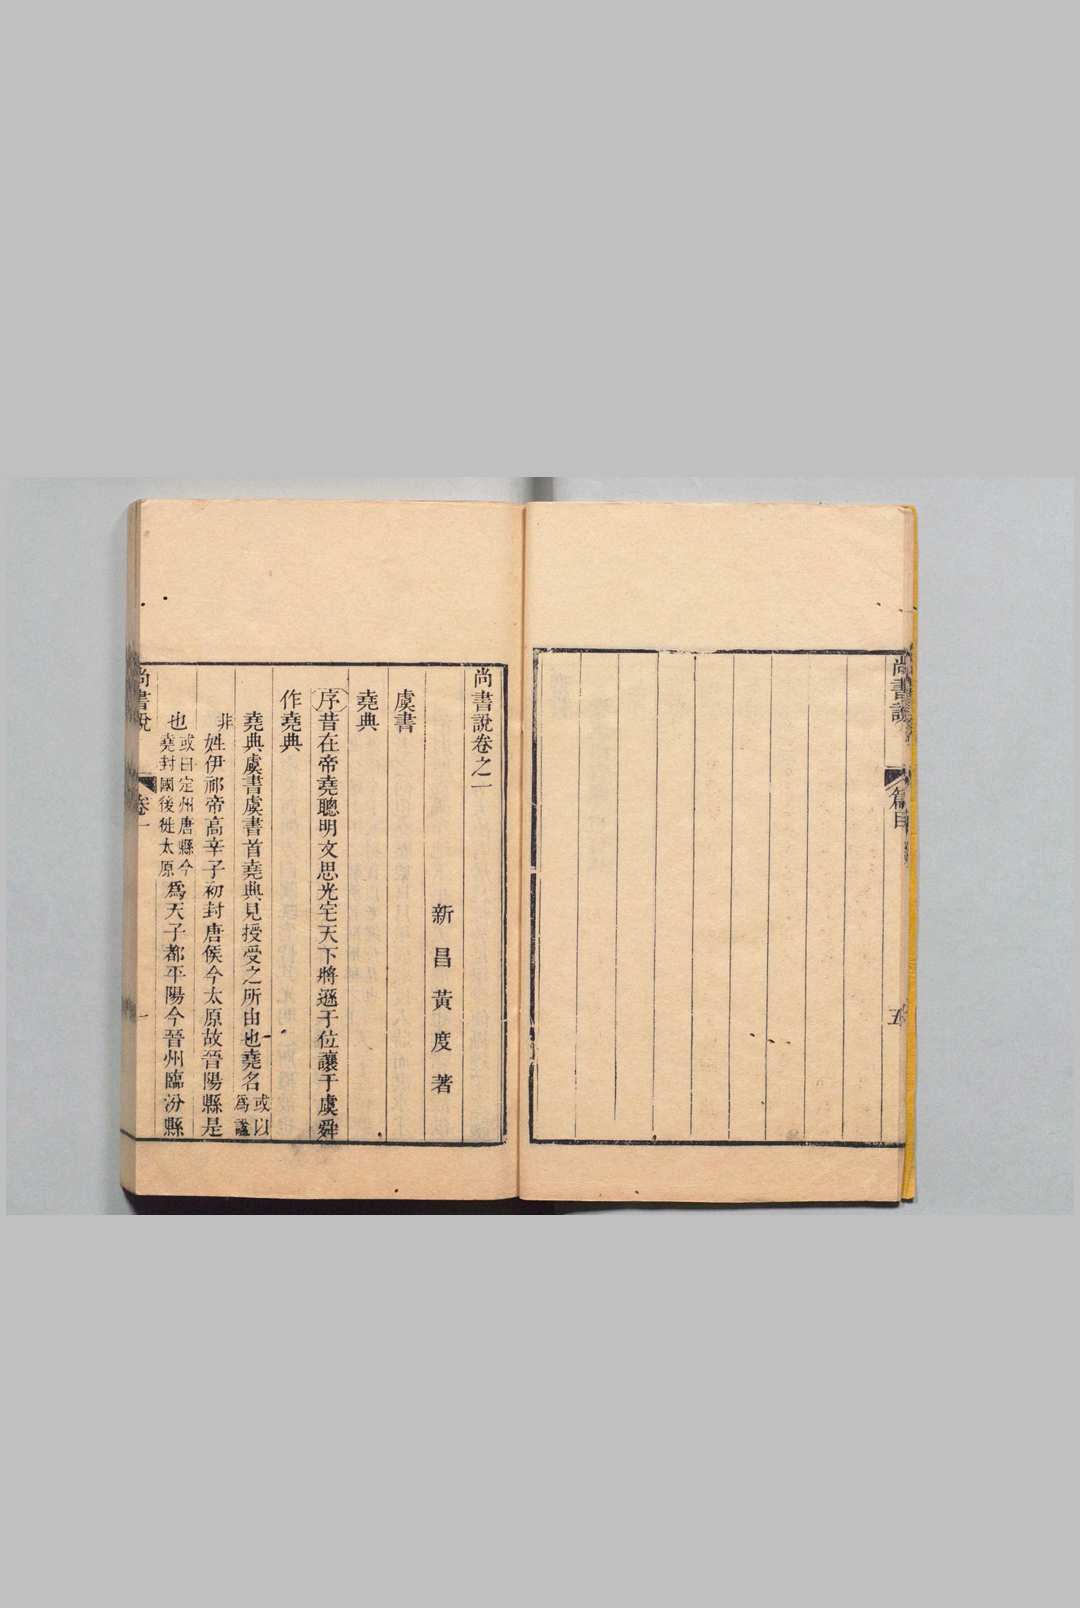 尚書說
篇目
五
尚書說卷之一
新昌黃度著
虞書
堯典
序昔在帝堯聰明文思光宅天下將遜于位讓于虞舜
作堯典
堯典虞書虞書首堯典見授受之所由也堯名或以爲諡
非姓伊祁帝高辛子初封唐侯今太原故晉陽縣是
也或曰定州唐縣今堯封國後徙太原爲天子都平陽今晉州臨汾縣
尚書說
卷一
一